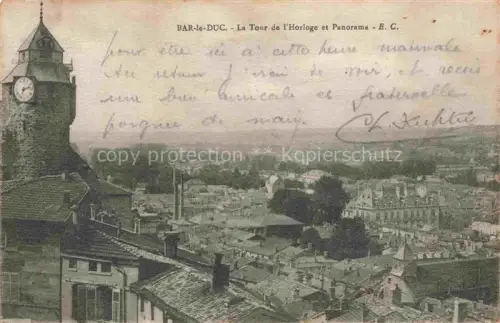 BAR-le-DUC. - La Tour de l'Horloge et Panorama - E. C.
pour être ici à cette heure matinale
Au retour j'irai de voir, et reçois
une bien amicale et fraternelle
poignée de main,
copy protection · Kopierschutz